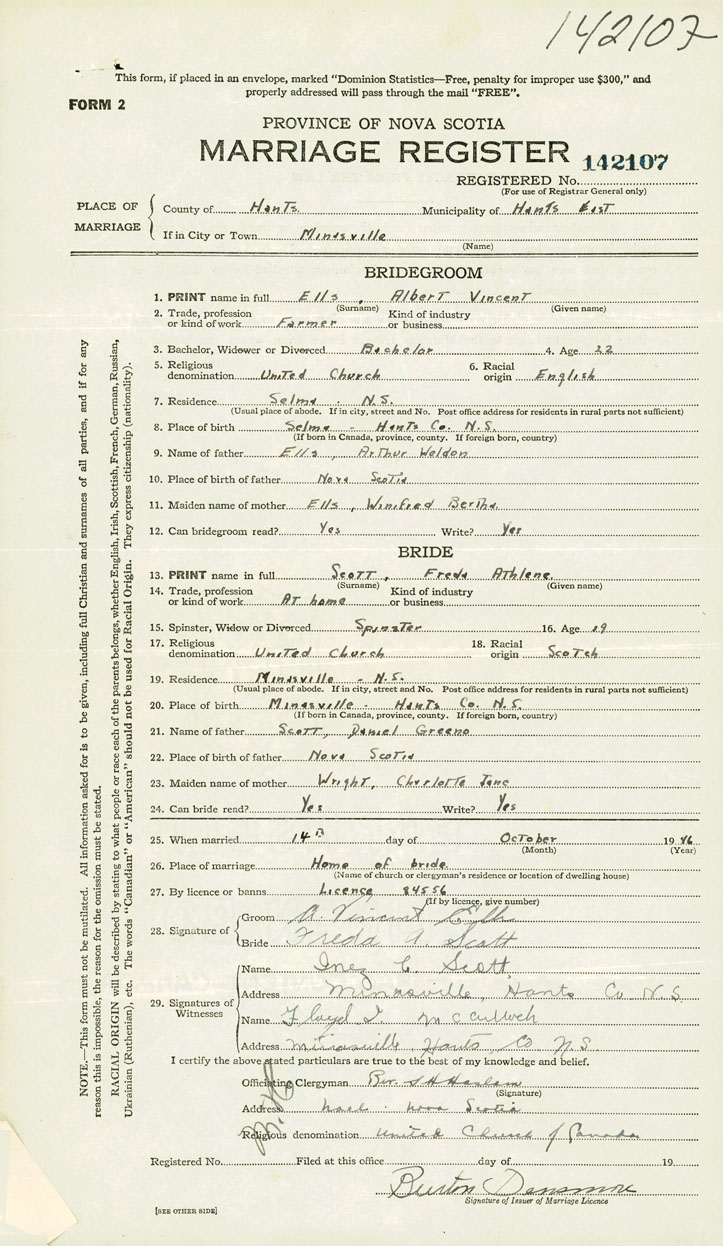 142107
This form, if placed in an envelope, marked "Dominion Statistics—Free, penalty for improper use $300," and
properly addressed will pass through the mail "FREE".
FORM 2
PROVINCE OF NOVA SCOTIA
MARRIAGE REGISTER 142107
REGISTERED No.
(For use of Registrar General only)
PLACE OF MARRIAGE
County of Hants Municipality of Hants East
If in City or Town Minasville
(Name)
BRIDEGROOM
1. PRINT name in full Ells, Albert Vincent
(Surname) (Given name)
2. Trade, profession or kind of work Farmer Kind of industry or business
3. Bachelor, Widower or Divorced Bachelor 4. Age 22
5. Religious denomination United Church 6. Racial origin English
7. Residence Selma - N.S.
(Usual place of abode. If in city, street and No. Post office address for residents in rural parts not sufficient)
8. Place of birth Selma - Hants Co. N.S.
(If born in Canada, province, county. If foreign born, country)
9. Name of father Ells, Arthur Weldon
10. Place of birth of father Nova Scotia
11. Maiden name of mother Ells, Winifred Bertha
12. Can bridegroom read? Yes Write? Yes
BRIDE
13. PRINT name in full Scott, Freda Athlene
(Surname) (Given name)
14. Trade, profession or kind of work At home Kind of industry or business
15. Spinster, Widow or Divorced Spinster 16. Age 19
17. Religious denomination United Church 18. Racial origin Scotch
19. Residence Minasville - N.S.
(Usual place of abode. If in city, street and No. Post office address for residents in rural parts not sufficient)
20. Place of birth Minasville - Hants Co. N.S.
(If born in Canada, province, county. If foreign born, country)
21. Name of father Scott, Daniel Greeno
22. Place of birth of father Nova Scotia
23. Maiden name of mother Wright, Charlotte Jane
24. Can bride read? Yes Write? Yes
25. When married 14th day of October 1946
(Month) (Year)
26. Place of marriage Home of bride
(Name of church or clergyman's residence or location of dwelling house)
27. By licence or banns Licence 84556
(If by licence, give number)
28. Signature of
Groom A. Vincent Ells
Bride Freda A. Scott
29. Signatures of Witnesses
Name Inez C Scott
Address Minasville, Hants Co N.S.
Name Floyd I McCulloch
Address Minasville Hants Co N.S.
I certify the above stated particulars are true to the best of my knowledge and belief.
Officiating Clergyman Rev.
(Signature)
Address Noel Nova Scotia
Religious denomination United Church of Canada
Registered No. Filed at this office day of 19
Burton Densmore
Signature of Issuer of Marriage Licence
[SEE OTHER SIDE]
NOTE.—This form must not be mutilated. All information asked for is to be given, including full Christian and surnames of all parties, and if for any
reason this is impossible, the reason for the omission must be stated.
RACIAL ORIGIN will be described by stating to what people or race each of the parents belongs, whether English, Irish, Scottish, French, German, Russian,
Ukrainian (Ruthenian), etc. The words "Canadian" or "American" should not be used for Racial Origin. They express citizenship (nationality).